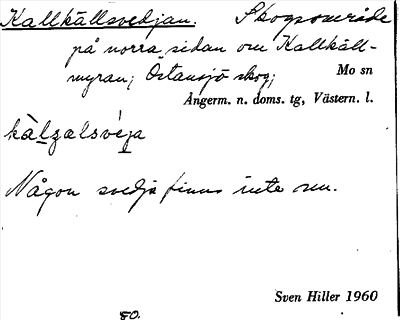 Kallkällsvedjan. Skogsområde
på norra sidan om Kallkäll-
myran; Östansjö skog;
Mo sn
Ångerm. n. doms. tg, Västern. l.
kàlzalsvéja
Någon svedja finns inte nu.
Sven Hiller 1960
80.